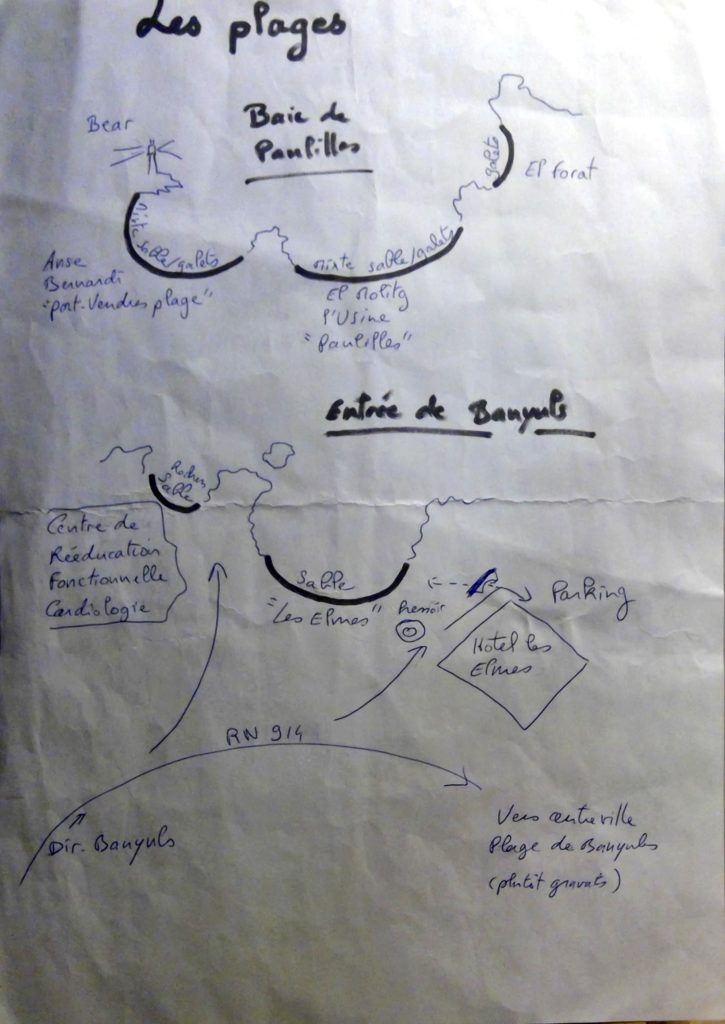 Les plages
Baie de
Paulilles
Bear
galets
El Forat
mixte sable/galets
mixte sable/galets
Anse
Bernardi
"port-Vendres plage"
El Molitg
l'Usine
"Paulilles"
Entrée de Banyuls
Rochers
Sable
Centre de
Rééducation
Fonctionnelle
Cardiologie
Sable
"Les Elmes"
Pressoir
Parking
Hotel les
Elmes
RN 914
Dir. Banyuls
Vers centre ville
Plage de Banyuls
(plutôt gravats)